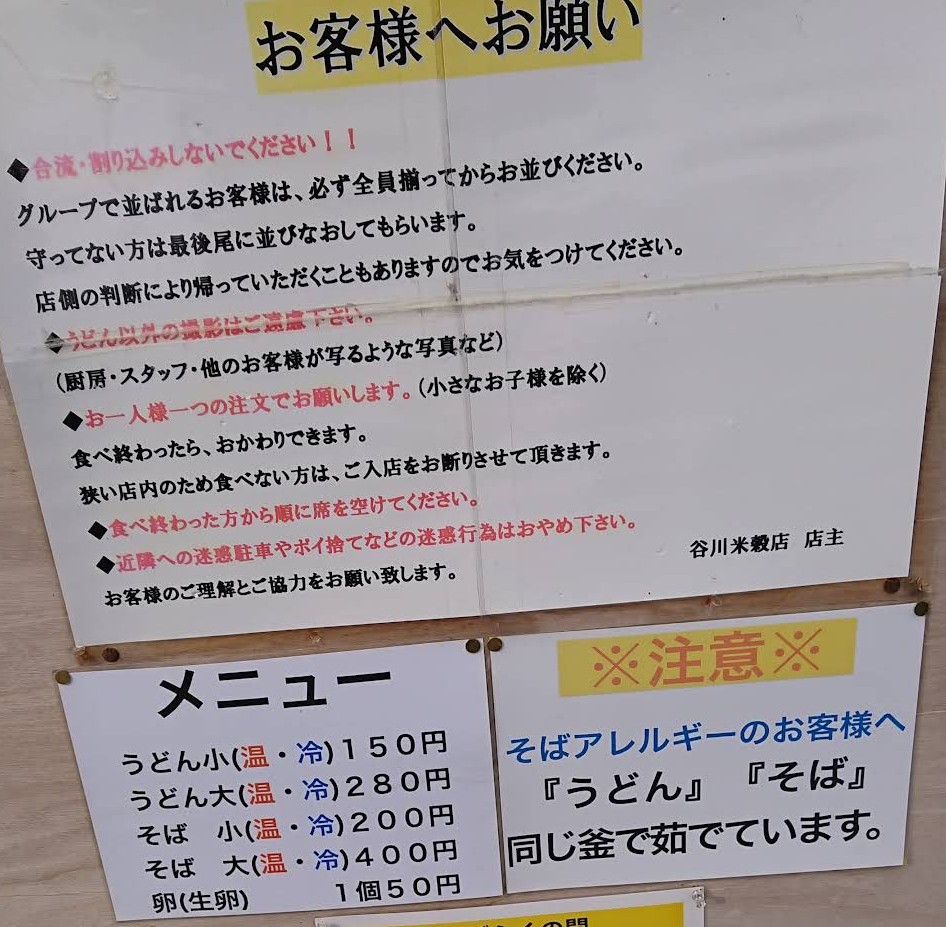 お客様へお願い
◆合流・割り込みしないでください！！
グループで並ばれるお客様は、必ず全員揃ってからお並びください。
守ってない方は最後尾に並びなおしてもらいます。
店側の判断により帰っていただくこともありますのでお気をつけてください。
◆うどん以外の撮影はご遠慮下さい。
(厨房・スタッフ・他のお客様が写るような写真など)
◆お一人様一つの注文でお願いします。(小さなお子様を除く)
食べ終わったら、おかわりできます。
狭い店内のため食べない方は、ご入店をお断りさせて頂きます。
◆食べ終わった方から順に席を空けてください。
◆近隣への迷惑駐車やポイ捨てなどの迷惑行為はおやめ下さい。
お客様のご理解とご協力をお願い致します。
谷川米穀店 店主
メニュー
うどん小(温・冷)１５０円
うどん大(温・冷)２８０円
そば　小(温・冷)２００円
そば　大(温・冷)４００円
卵(生卵)　　　１個５０円
※注意※
そばアレルギーのお客様へ
『うどん』『そば』
同じ釜で茹でています。